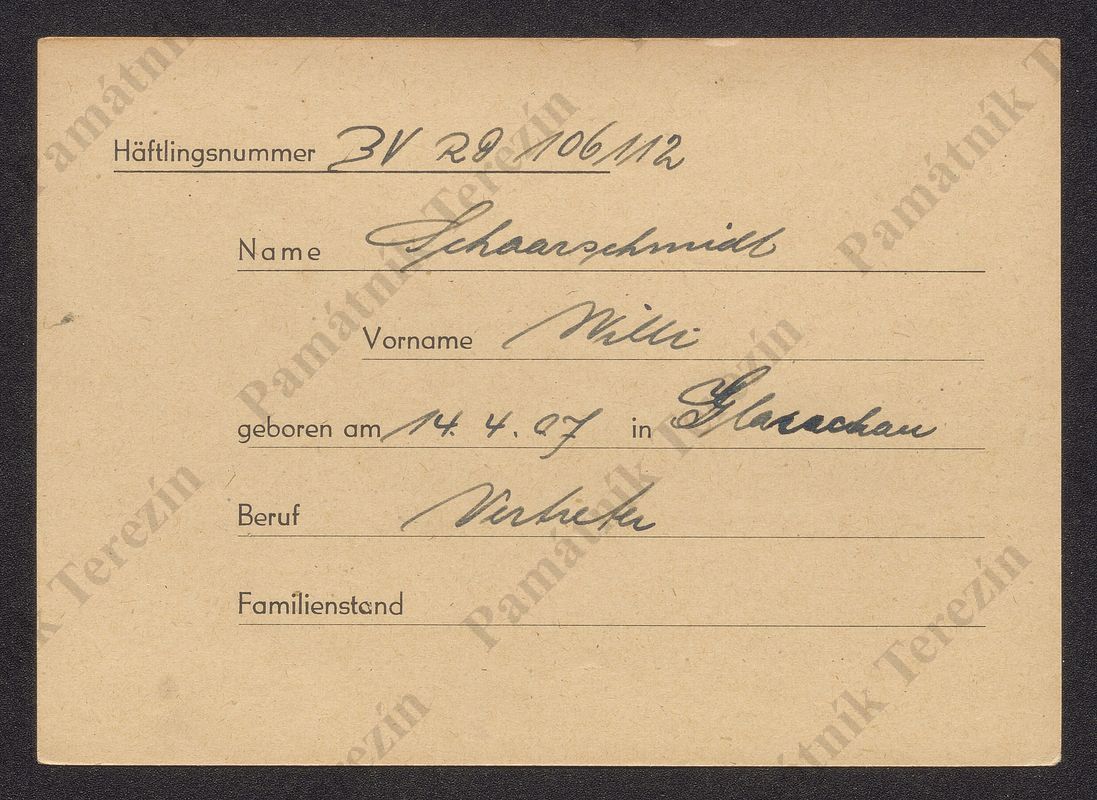 Häftlingsnummer BV RD 106112
Name Schaarschmidt
Vorname Willi
geboren am 14. 4. 07 in
Beruf Vertreter
Familienstand
Památník Terezín